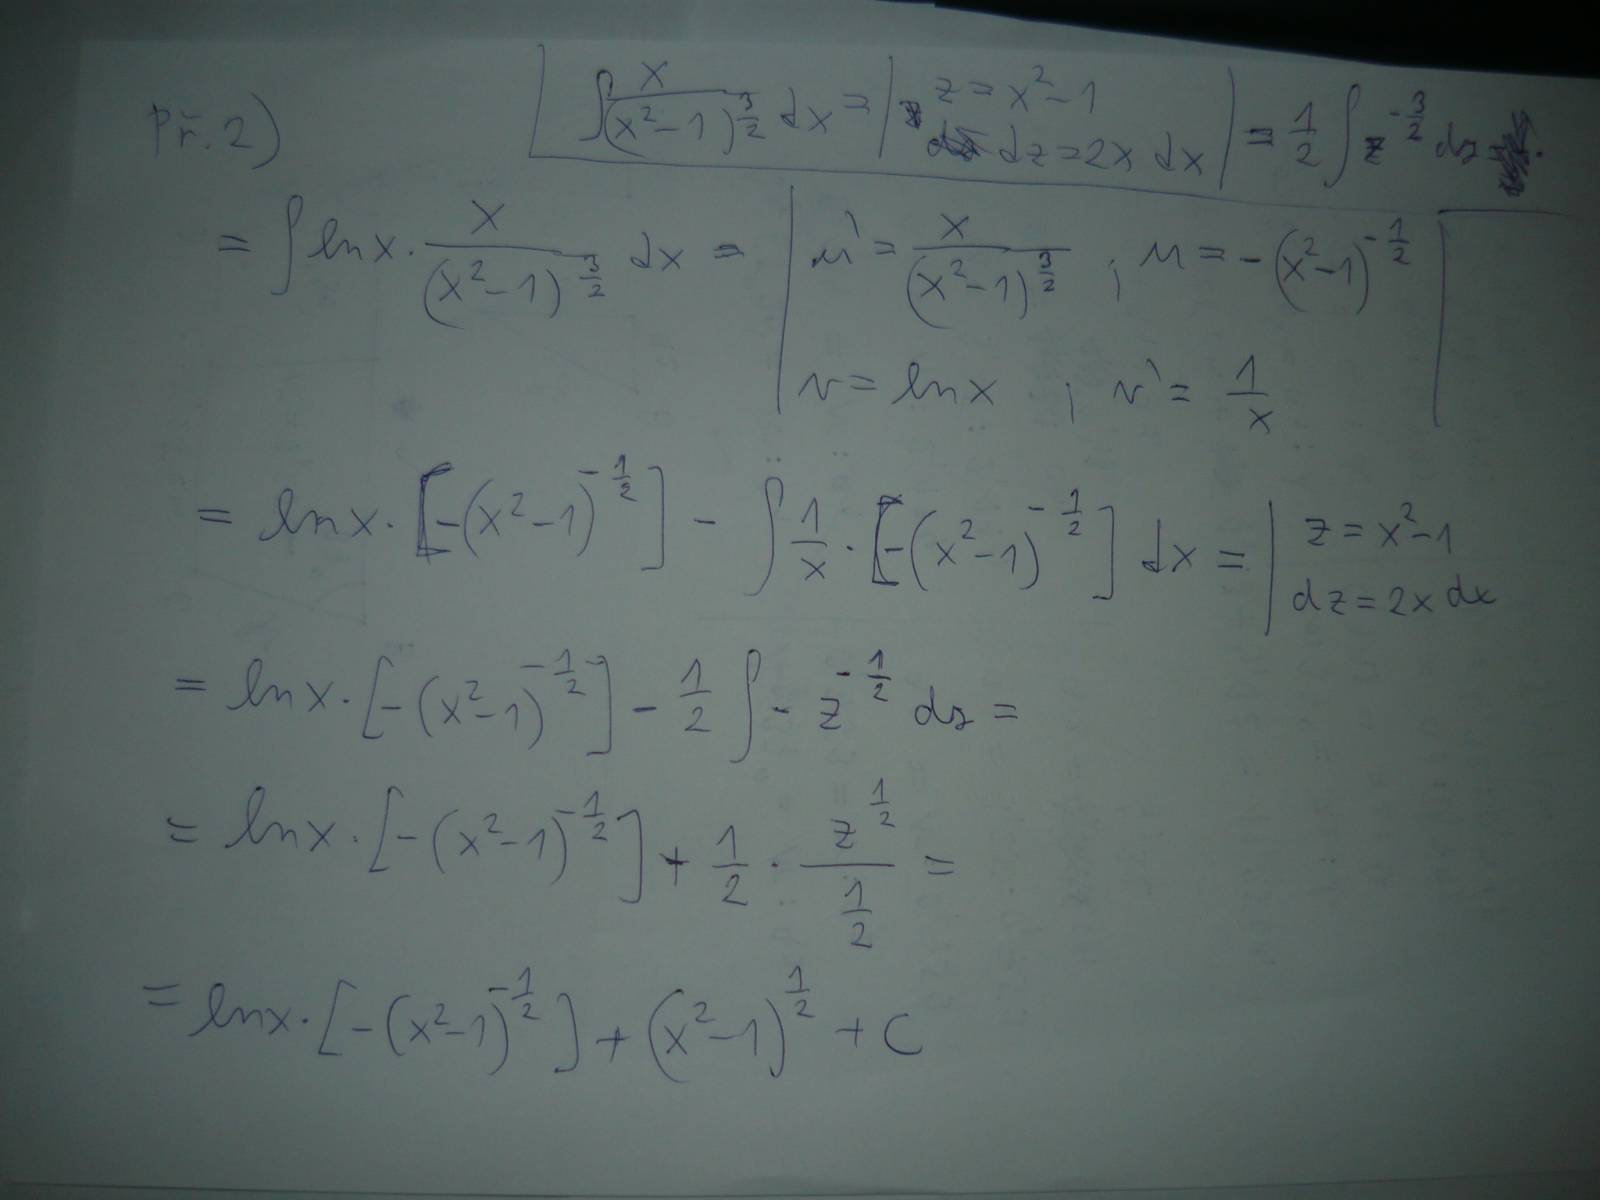 Př. 2)
∫ x/(x²-1)^(3/2) dx = | z = x²-1 dz = 2x dx | = 1/2 ∫ z^(-3/2) dz
= ∫ ln x · x/(x²-1)^(3/2) dx = | u' = x/(x²-1)^(3/2) ; u = -(x²-1)^(-1/2) |
| v = ln x ; v' = 1/x |
= ln x · [-(x²-1)^(-1/2)] - ∫ 1/x · [-(x²-1)^(-1/2)] dx = | z = x²-1
dz = 2x dx
= ln x · [-(x²-1)^(-1/2)] - 1/2 ∫ - z^(-1/2) dz =
= ln x · [-(x²-1)^(-1/2)] + 1/2 · z^(1/2)/(1/2) =
= ln x · [-(x²-1)^(-1/2)] + (x²-1)^(1/2) + C